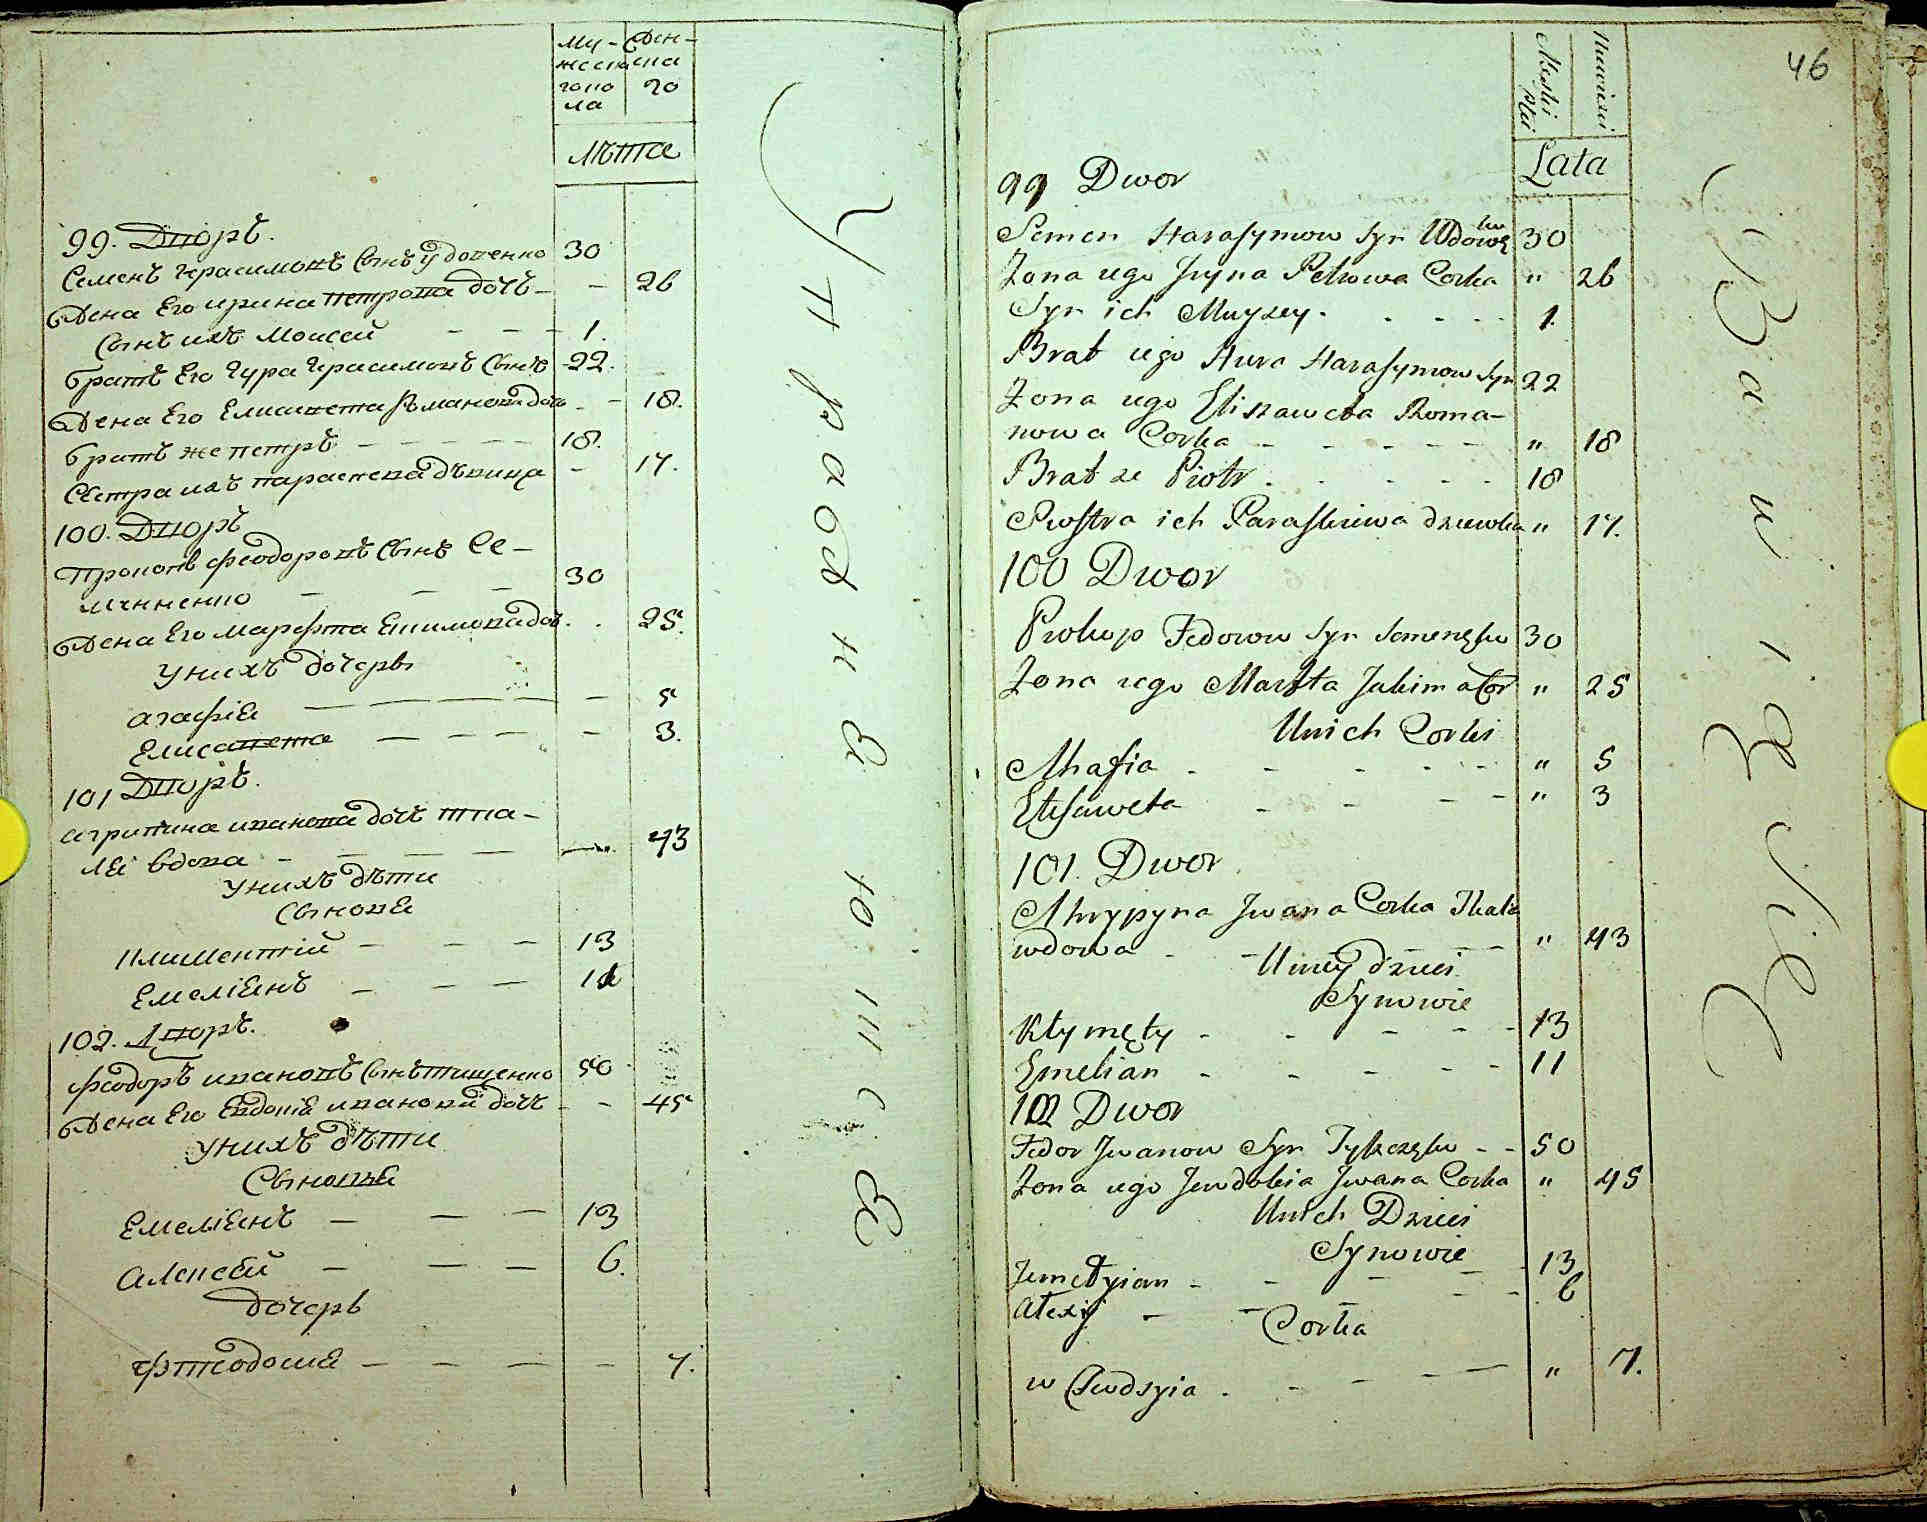 Му-
жеска
гопо
ла
Жен-
ска
го
Лѣта
99. Дворъ.
Семенъ Герасимовъ Сынъ Удовенко 30
Жена Его Ирина петрова дочь - - 26
Сынъ ихъ Моисей - - - 1.
братъ Его Гура Герасимовъ Сынъ 22.
Жена Его Елисавета Романова дочь - - 18.
братъ же петръ - - - - - 18.
Сестра ихъ параскева дѣвица - 17.
100. Дворъ
Прокопъ феодоровъ Сынъ Се-
мененко - - - 30
Жена Его Марфта Екимова доч. . 25.
У нихъ дочери
агафіа - - - - - - 5
Елисавета - - - - - 3.
101 Дворъ.
агрипина иванова дочь тка-
лѣ вдова - - - - - 43
У нихъ дѣти
Сынове
Климентій - - - 13
Емеліанъ - - - 11
102. Дворъ.
феодоръ ивановъ Сынъ тищенко 50
Жена Его Евдокіа иванова дочь - - 45
У нихъ дѣти
Сынове
Емеліанъ - - - 13
Алексѣй - - - 6.
дочерь
феодосиа - - - - - 7.
У праважнаю щ с е
46
Męskei
płci
Lata
99 Dwor
Semen Harasymow Syn Wdowę
ko 30
Zona iego Jryna Petrowa Corka " 26
Syn ich Muysey . . - - - 1.
Brat iego Hura Harasymow Syn 22
Zona iego Eliszaweta Roma-
nowa Corka - - - - - - " 18
Brat ze Piotr . . - - - 18
Siostra ich Paraskiewa dziewka " 17.
100 Dwor
Prokop Fedorow Syn Semenęko 30
Zona iego Marfta Jakima Cor " 25
U nich Corki
Ahafia - - - - - - " 5
Elisaweta - - - - " 3
101. Dwor
Ahrypyna Jwana Corka Tkala
wdowa - - - - - " 43
U niey dzieci
Synowie
Klymęty - - - - - 13
Emelian - - - - - 11
102 Dwor
Fedor Jwanow Syn Tyszczęko - - 50
Zona iego Jewdokia Jwana Corka " 45
U nich Dzieci
Synowie
Jemelyian - - - - 13
Alexiy - - - - - 6
Corka
w Chwdsyia . - - - " 7.